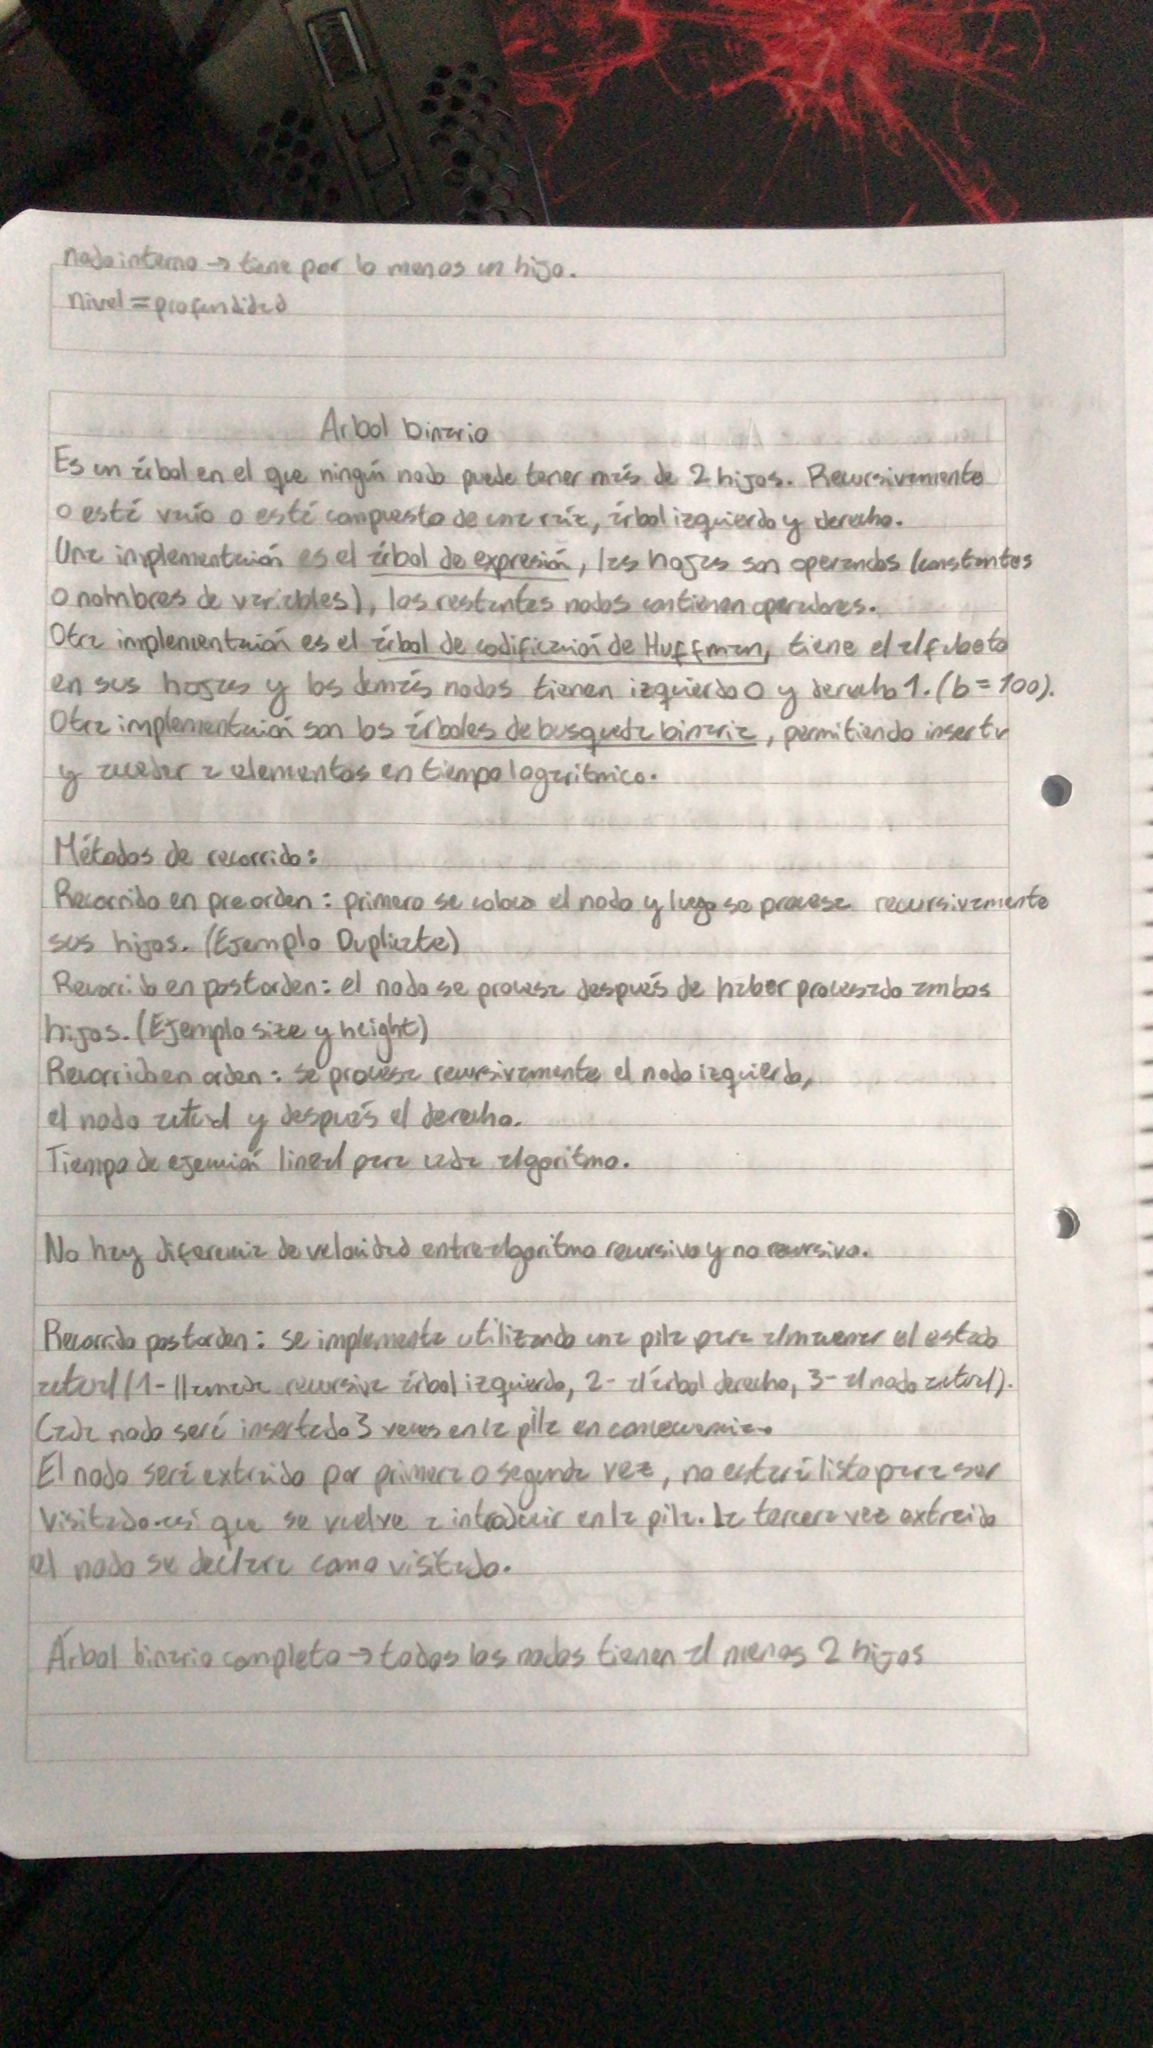 nodo interno → tiene por lo menos un hijo.
nivel = profundidad
Arbol binario
Es un árbol en el que ningún nodo puede tener más de 2 hijos. Recursivamente
o está vacío o está compuesto de una raíz, árbol izquierdo y derecho.
Una implementación es el árbol de expresión, las hojas son operandos (constantes
o nombres de variables), los restantes nodos contienen operadores.
Otra implementación es el árbol de codificación de Huffman, tiene el alfabeto
en sus hojas y los demás nodos tienen izquierdo 0 y derecho 1. (b = 100).
Otra implementación son los árboles de busqueda binaria, permitiendo insertar
y acceder a elementos en tiempo logaritmico.
Métodos de recorrido:
Recorrido en preorden: primero se coloca el nodo y luego se procesa recursivamente
sus hijos. (Ejemplo Duplicate)
Recorrido en postorden: el nodo se procesa después de haber procesado ambos
hijos. (Ejemplo size y height)
Recorrido en orden: se procesa recursivamente el nodo izquierdo,
el nodo actual y después el derecho.
Tiempo de ejecución lineal para cada algoritmo.
No hay diferencia de velocidad entre algoritmo recursivo y no recursivo.
Recorrido postorden: se implementa utilizando una pila para almacenar el estado
actual (1- llamada recursiva árbol izquierdo, 2- al árbol derecho, 3- al nodo actual).
Cada nodo será insertado 3 veces en la pila en consecuencia.
El nodo será extraído por primera o segunda vez, no estará listo para ser
visitado así que se vuelve a introducir en la pila. La tercera vez extraido
el nodo se declara como visitado.
Árbol binario completo → todos los nodos tienen al menos 2 hijos